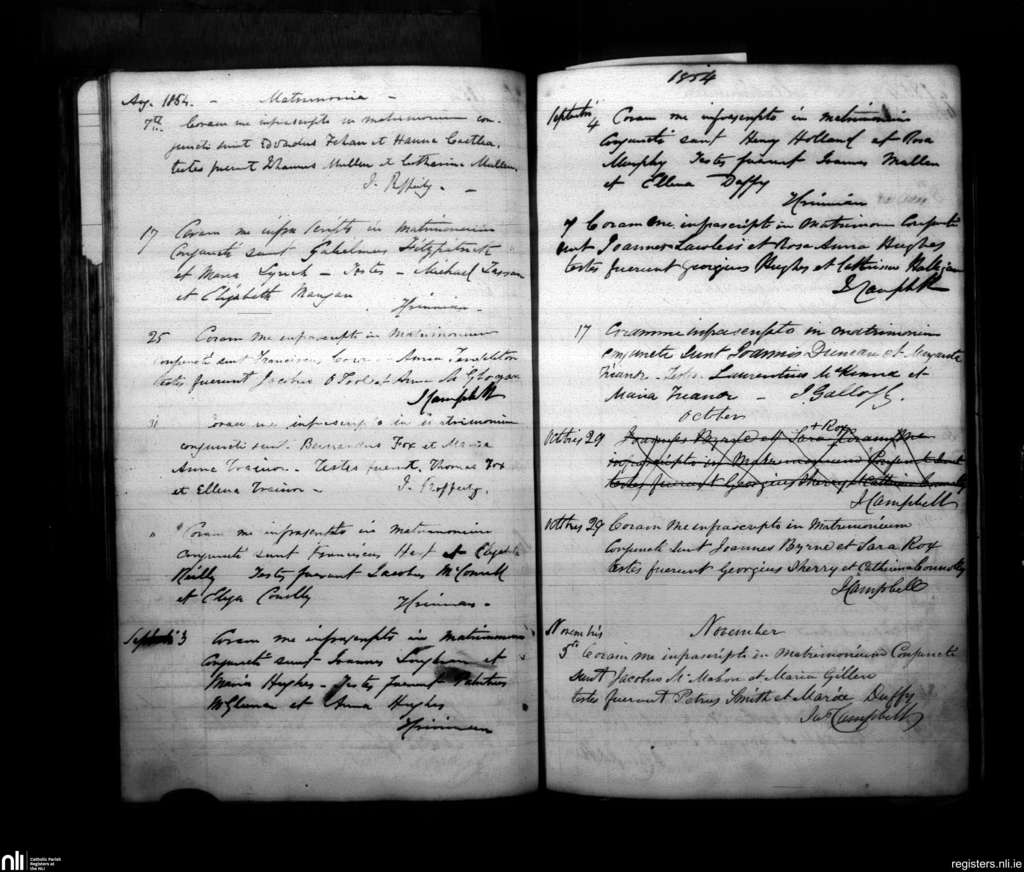 Aug. 1854. - Matrimonia -
7th Coram me infrascripto in matrimonium con-
juncti sunt Edvardus Fehan et Hanna
testes fuerunt Mullen et Catharina Mullen.
J. Rafferty. -
17 Coram me infra scripto in Matrimonium
Conjuncti sunt Gulielmus Fitzpatrick
et Maria Lynch - Testes - Michael
et Elizabeth Mangan
25 Coram me infrascripto in Matrimonium
conjuncti sunt Franciscus Anna Templeton
testes fuerunt Jacobus O Tool et Anna
J Campbell
31 Coram me infrascripto in Matrimonium
conjuncti sunt. Bernardus Fox et Maria
Anna Trainor. - Testes fuerunt, Thomas Fox
et Ellena Trainor - J. Rafferty.
" Coram me infrascripto in matrimonium
conjuncti sunt Franciscus et
Reilly Testes fuerunt Jacobus McConnell
et Eliza Conolly
3 Coram me infrascripto in matrimonium
Conjuncti sunt Joannes et
Maria Hughes - Testes fuerunt
et Anna Hughes
1854
4 Coram me infrascripto in matrimonio
Conjuncti sunt Henry Holland et Rosa
Murphy Testes fuerunt Joannes Mallen
et Ellena Duffy
9 Coram me infrascripto in Matrimonium Conjuncti
sunt Joannes Lawless et Rosa Anna Hughes
testes fuerunt Georgius Hughes et Catherina
J Campbell
17 Coram me infrascripto in matrimonium
conjuncti sunt Joannis Duncan et
Testes. Laurentius McKenna et
Maria - J. Gallogly.
October
Octbris 29 Joannes Byrne et Sara + Rox Coram me
infrascripto in Matrimonium Conjuncti sunt
testes fuerunt Georgius Sherry et Catherina Connolly
J Campbell
Octbris 29 Coram me infrascripto in Matrimonium
Conjuncti sunt Joannes Byrne et Sara Rox
testes fuerunt Georgius Sherry et Catherina Connolly
J Campbell
November
Novembris
5th Coram me infrascripto in Matrimonium Conjuncti
sunt Jacobus McMahon et Maria Gillen
testes fuerunt Petrus Smith et Maria Duffy
Jas Campbell
nli
Catholic Parish
Registers at
the NLI
registers.nli.ie